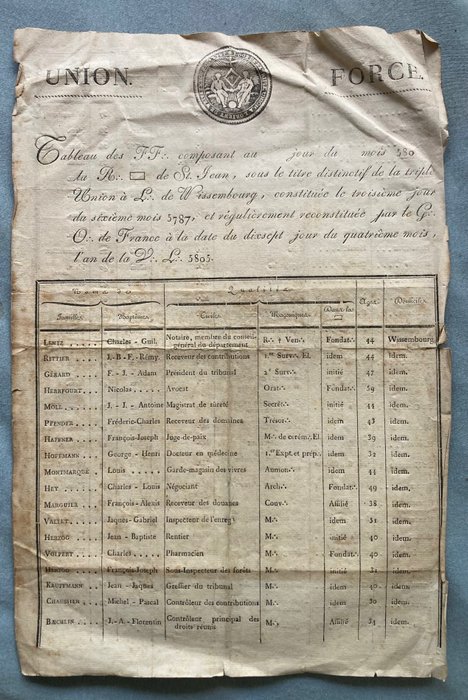 UNION. FORCE.
Tableau des FF∴ composant au jour du mois 580
du R∴ ▭ de St. Jean, sous le titre distinctif de la triple
Union à L∴ de Wissembourg, constituée le troisième jour
du sixième mois 5787, et régulièrement reconstituée par le G∴
O∴ de France à la date du dixsept jour du quatrième mois,
l'an de la V∴ L∴ 5805.
Qualités Ages Domicile
Familles Baptême Civiles Maçonniques
LENTZ Charles - Guil. Notaire, membre du conseil général du département R∴ † Ven∴ Fondat∴ 44 Wissembourg
RITTIER J. - B. - F. - Rémy. Receveur des contributions 1.er Surv∴ El. idem 44 idem.
GÉRARD F. - J. - Adam Président du tribunal 2.e Surv∴ initié 47 idem.
HERRFOURT Nicolas Avocat Orat∴ Fondat∴ 59 idem.
MOLL J. - J. - Antoine Magistrat de sûreté Secrét∴ initié 44 idem.
PFENDER Fréderic-Charles Receveur des domaines Trésor∴ idem 43 idem.
HAFFNER François-Joseph Juge-de-paix M∴ de cerém∴ El. idem 39 idem.
HOFFMANN George - Henri Docteur en médecine 1.er Expt. et prép∴ idem 32 idem.
MONTMARQUÉ Louis Garde-magasin des vivres Aumon∴ idem 44 idem.
HEY Charles - Louis Négociant Arch∴ Fondat∴ 49 idem.
MARGUIER François-Alexis Receveur des douanes Couv∴ Affilié 38 idem.
VALLET Jaques-Gabriel Inspecteur de l'enreg∴ M∴ idem 31 idem.
HERZOG Jean - Baptiste Rentier M∴ initié 40 idem.
VOLPERT Charles Pharmacien M∴ Fondat∴ 40 idem.
François-Joseph Sous-Inspecteur des forêts M∴ initié 31 idem.
KAUFFMANN Jean - Jaques Greffier du tribunal M∴ idem 40 idem.
CHAUSSIEN Michel - Pascal Contrôleur des contributions M∴ idem 30 idem.
BÆCHLIN J. - A. - Florentin Contrôleur principal des droits réunis M∴ Affilié 34 idem.